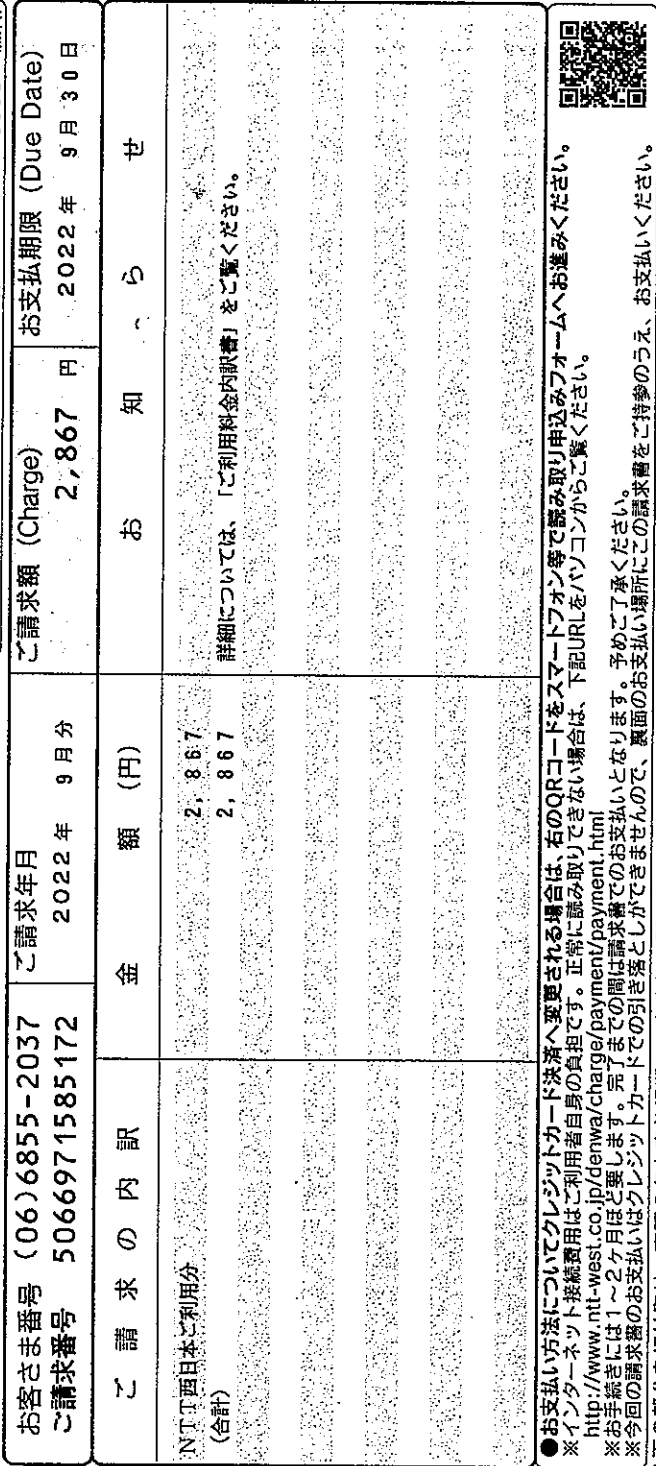 お客さま番号 (06)6855-2037
ご請求番号 5066971585172
ご請求年月
2022年 9月分
ご請求額 (Charge)
2,867 円
お支払期限 (Due Date)
2022年 9月30日
ご請求の内訳 金額 (円) お知らせ
NTT西日本ご利用分 2,867
(合計) 2,867 詳細については、「ご利用料金内訳書」をご覧ください。
●お支払い方法についてクレジットカード決済へ変更される場合は、右のQRコードをスマートフォン等で読み取り申込みフォームへお進みください。
※インターネット接続費用はご利用者自身の負担です。正常に読み取りできない場合は、下記URLをパソコンからご覧ください。
http://www.ntt-west.co.jp/denwa/charge/payment/payment.html
※お手続きには1～2ケ月ほど要します。完了までの間は請求書でのお支払いとなります。予めご了承ください。
※今回の請求書のお支払いはクレジットカードでの引き落としができませんので、裏面のお支払い場所にこの請求書をご持参のうえ、お支払いください。